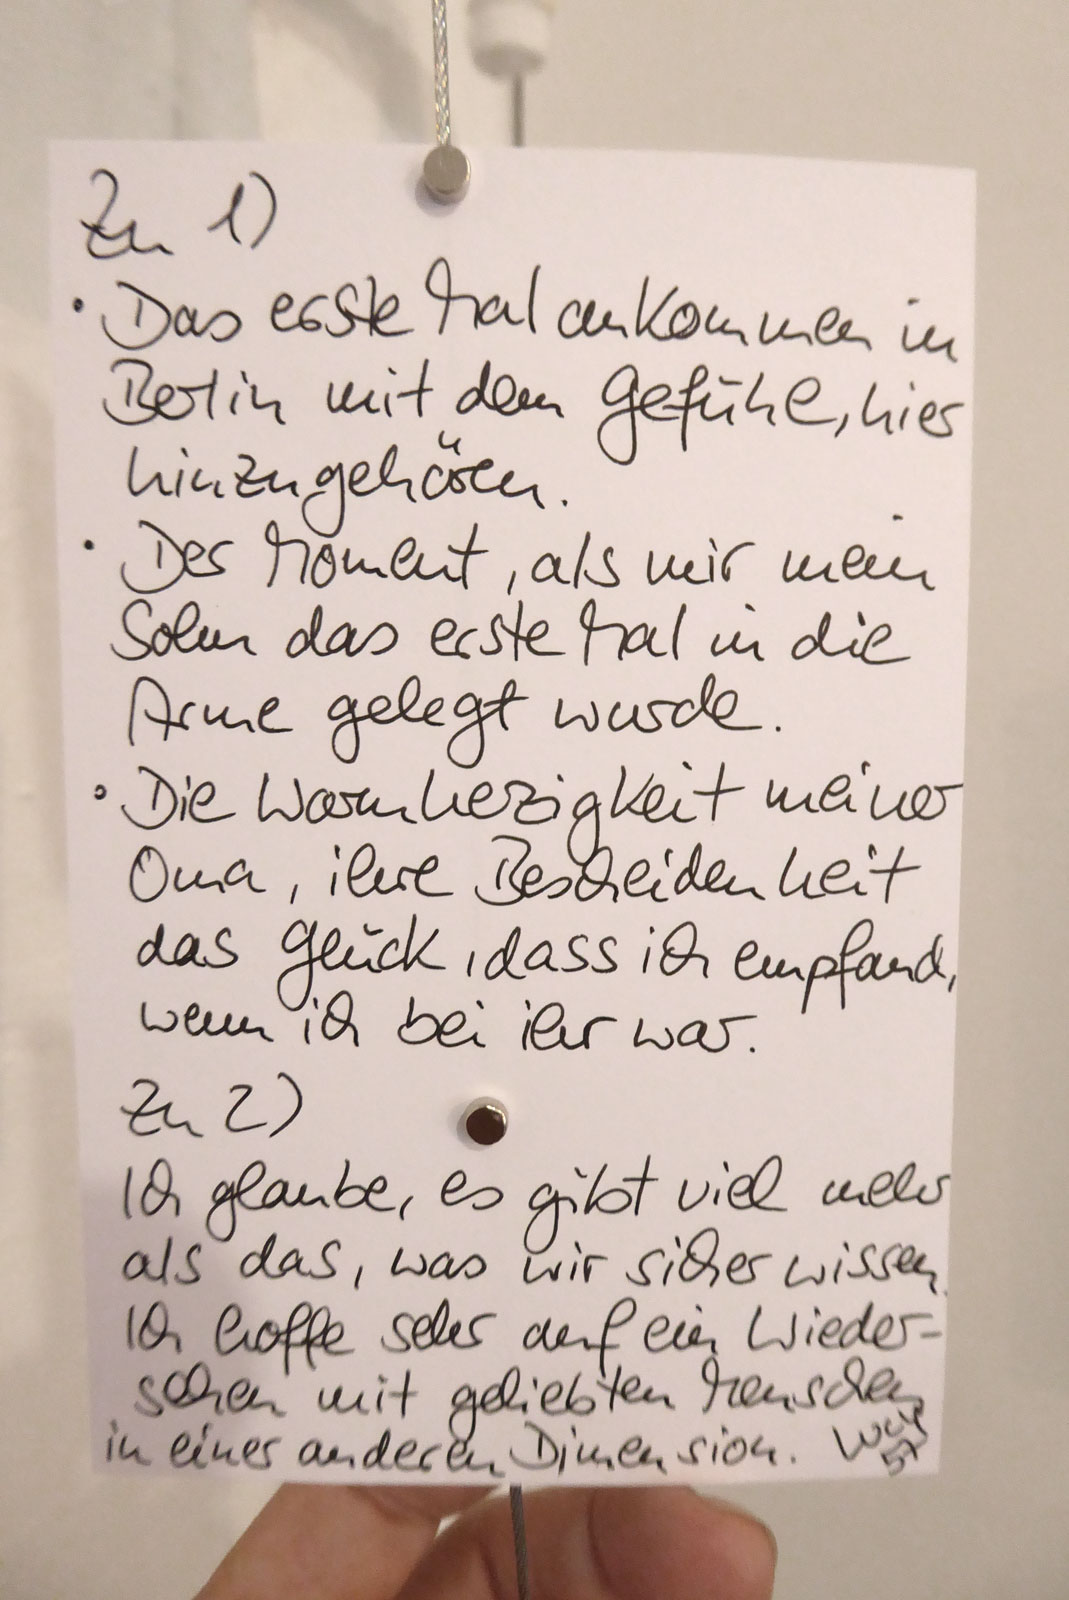 Zu 1)
• Das erste Mal ankommen in
Berlin mit dem Gefühl, hier
hinzugehören.
• Der Moment, als mir mein
Sohn das erste Mal in die
Arme gelegt wurde.
• Die Warmherzigkeit meiner
Oma, ihre Bescheidenheit
das Glück, dass ich empfand,
wenn ich bei ihr war.
Zu 2)
Ich glaube, es gibt viel mehr
als das, was wir sicher wissen.
Ich hoffe sehr auf ein Wieder-
sehen mit geliebten Menschen
in einer anderen Dimension.
57